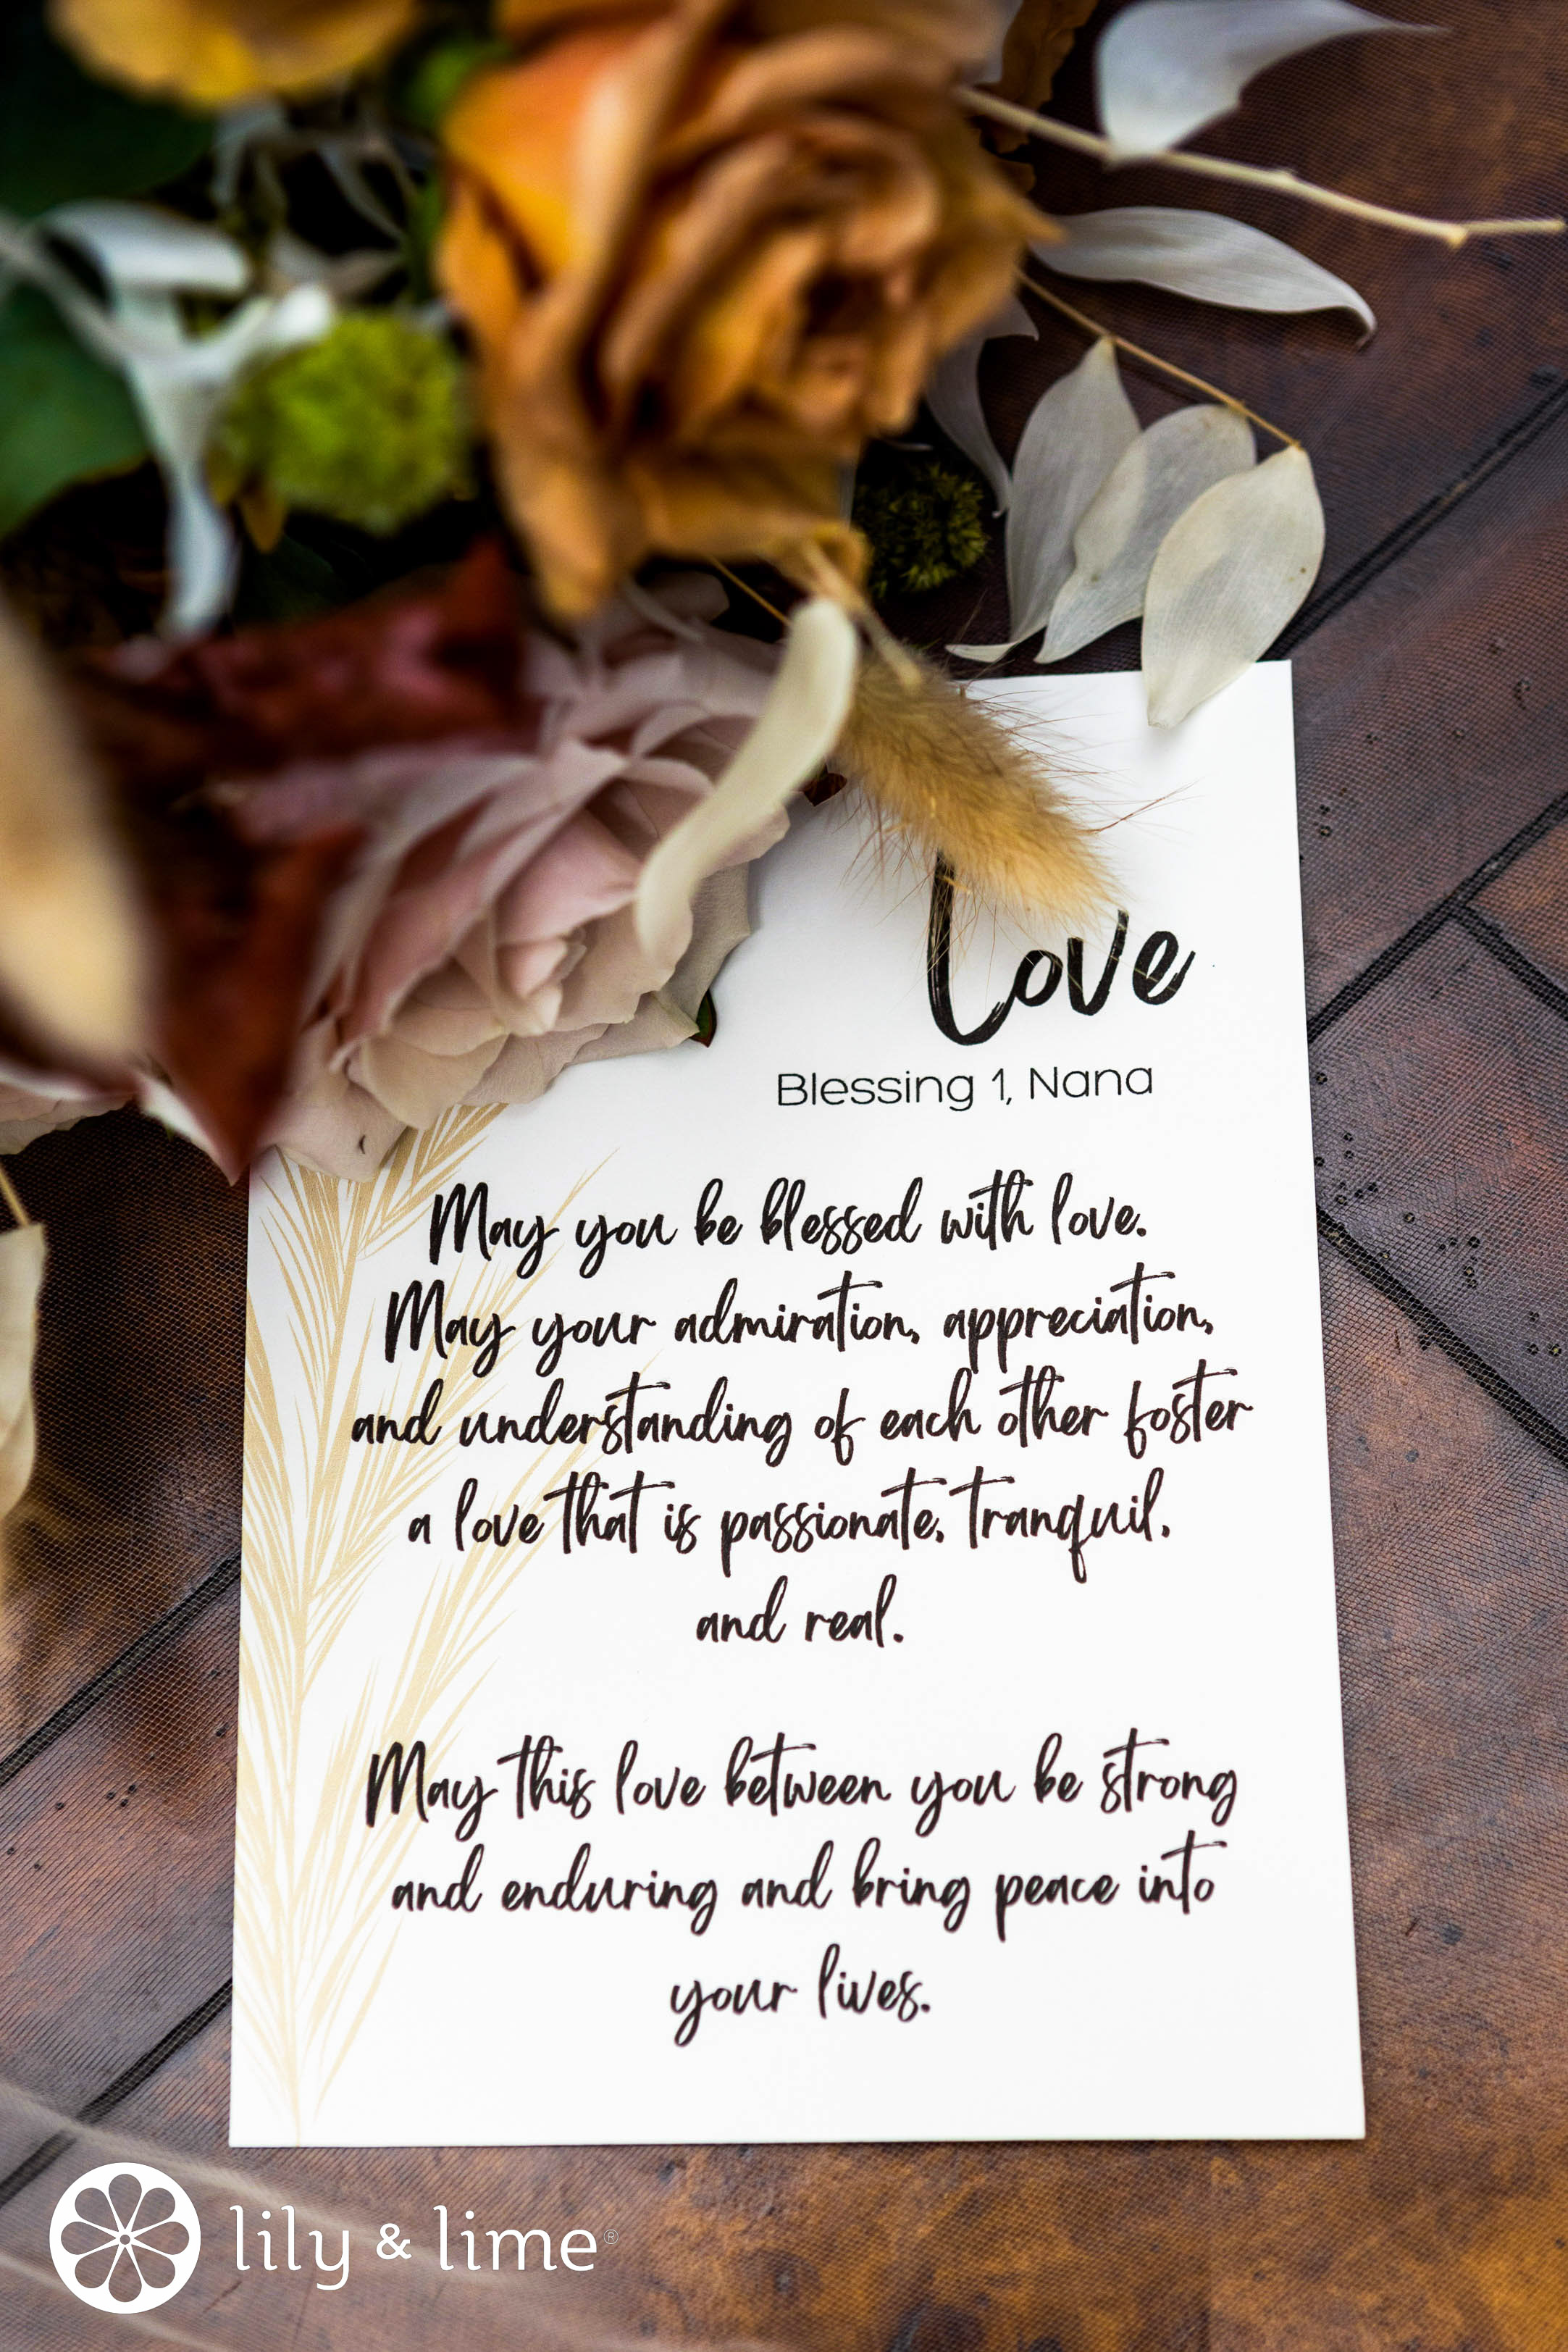 Love
Blessing 1, Nana
May you be blessed with love.
May your admiration, appreciation,
and understanding of each other foster
a love that is passionate, tranquil,
and real.
May this love between you be strong
and enduring and bring peace into
your lives.
lily & lime®